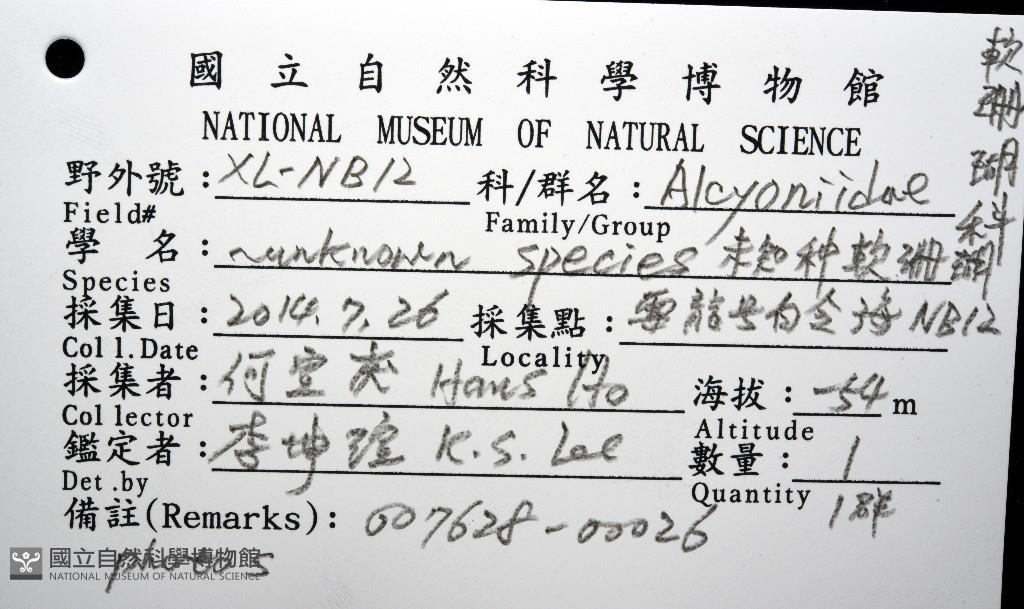 國立自然科學博物館
NATIONAL MUSEUM OF NATURAL SCIENCE
軟珊瑚科
野外號: XL-NB12 科/群名: Alcyoniidae
Field# Family/Group
學名: unknown species 未知种軟珊瑚
Species
採集日: 2014.7.26 採集點: 雪龍号白令海 NB12
Coll.Date Locality
採集者: 何宣 Hans Ho 海拔: -54 m
Collector Altitude
鑑定者: 李坤瑄 K.S. Lee 數量: 1
Det.by Quantity 1群
備註(Remarks): 007628-00026
photos
國立自然科學博物館
NATIONAL MUSEUM OF NATURAL SCIENCE